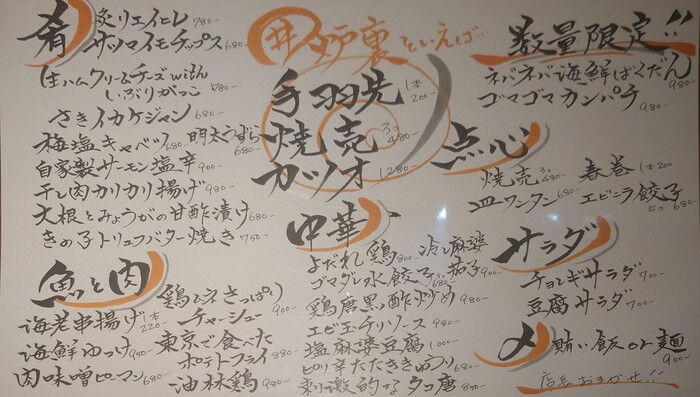 肴
炙りエイヒレ 780-
サツマイモチップス 680-
生ハムクリームチーズwith
いぶりがっこ 780-
さきイカケジャン 680-
梅塩キャベツ 680- 明太うずら 680-
自家製サーモン塩辛 900-
干し肉カリカリ揚げ 980-
大根とみょうがの甘酢漬け 680-
きの子トリュフバター焼き 750-
魚と肉
海老串揚げ 1本 220-
海鮮ゆっけ 980-
肉味噌ピーマン 680-
鶏ムネさっぱり
チャーシュー 900-
東京で食べた
ポテトフライ 880-
油林鶏 980-
井炉裏といえば…
手羽先 1本 200-
焼売 3コ 480-
カツオ 1280-
中華
よだれ鶏 800-
冷し麻婆
茄子 900-
ゴマダレ水餃子 5コ 680-
鶏唐黒酢炒め 980-
エビ玉チリソース 980-
塩麻婆豆腐 1000-
ピリ辛たたききゅうり 680-
刺激的なタコ唐 850-
数量限定!!
ネバネバ海鮮ばくだん 980-
ゴマゴマカンパチ 980-
点心
焼売 3コ 480-
春巻 1コ 200
皿ワンタン 680-
エビニラ餃子 5コ 680-
サラダ
チョレギサラダ 700-
豆腐サラダ 700-
〆
賄い飯or麺 900-
店長おまかせ!!